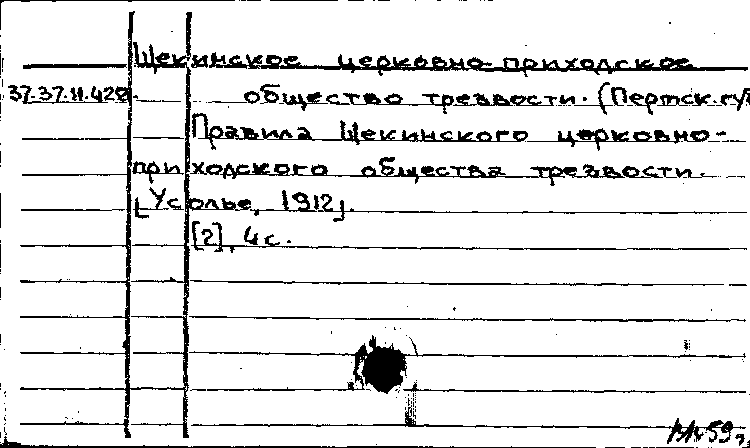 Щекинское церковно-приходское
37.37.11.420.
общество трезвости. (Пермск.гу
Правила Щекинского церковно-
приходского общества трезвости.
[Усолье, 1912].
[2], 4 с.